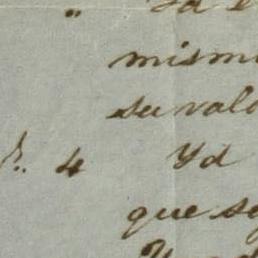 "
mism
su valo
4 Yd
que se